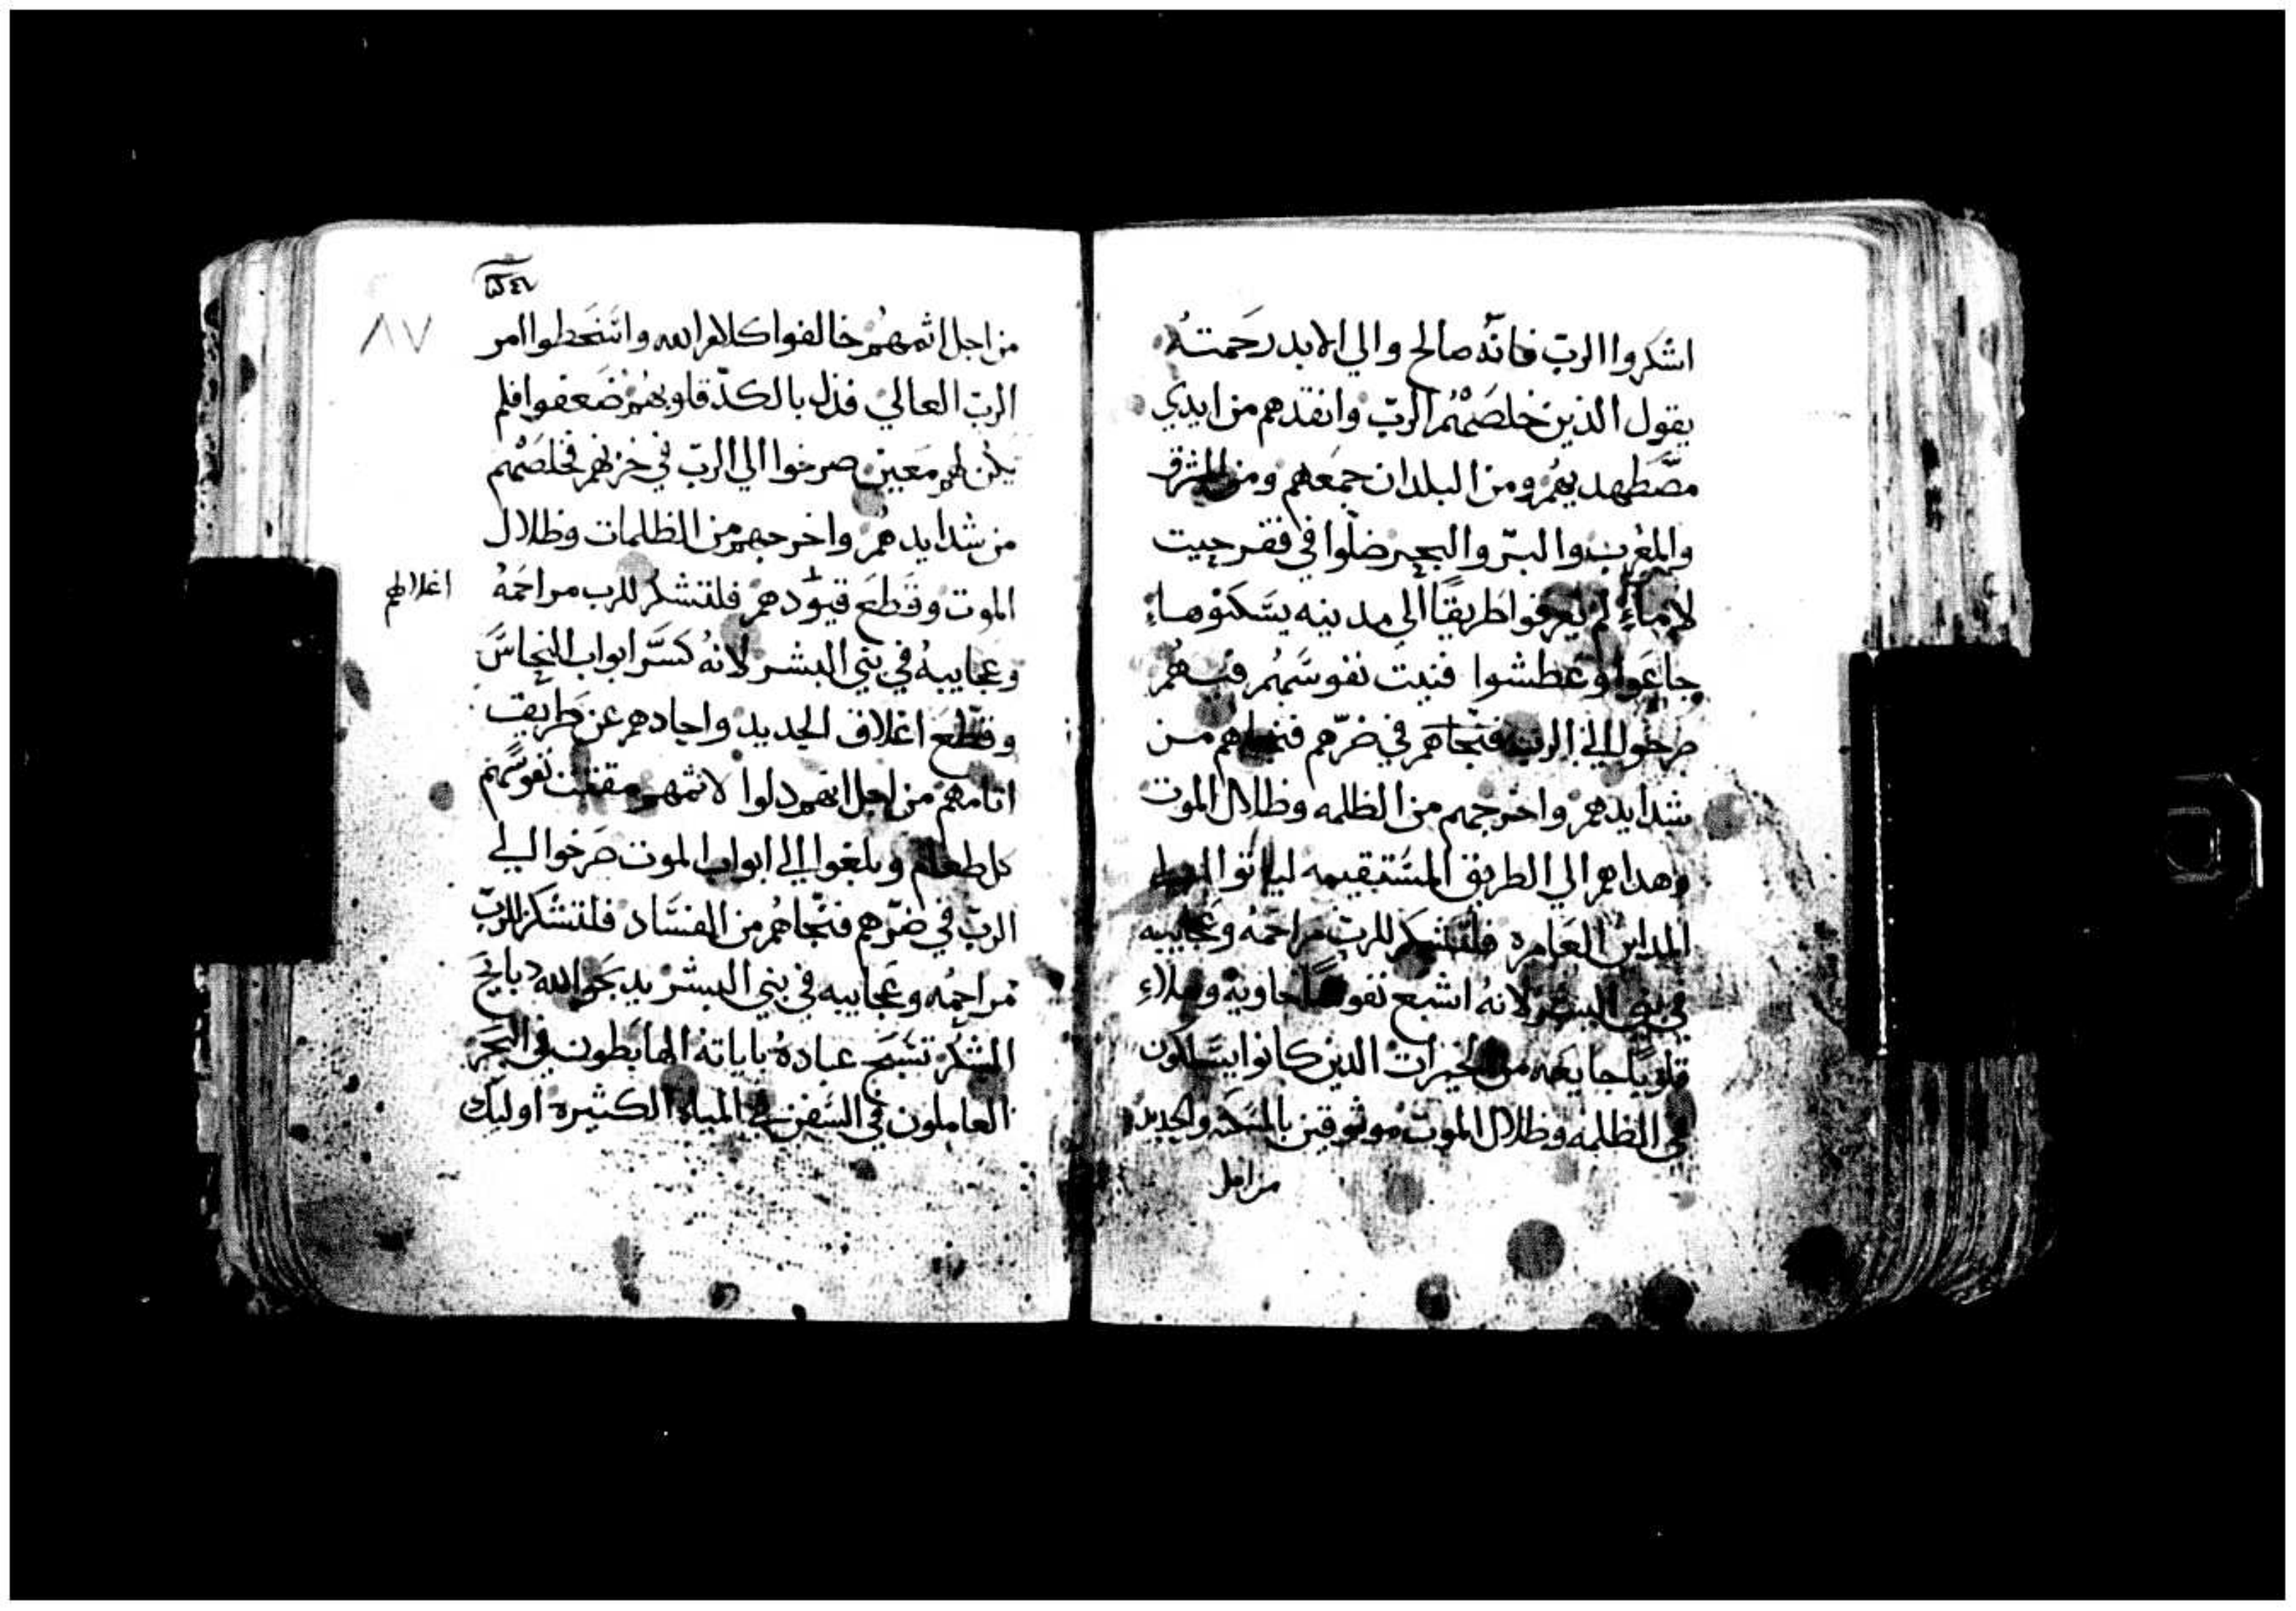 اشكروا الربّ فانّه صالح والي الابد رحمتهُ
يقول الذين خلصَهُم الربّ وانقدهم من ايدي
مضّطهديهُم ومن البلدان جمعهم ومن المشرق
والمغرب والبرّ والبحر ضلّوا في قفر حيت
لا ماءٍ لم يعرفوا طريقًا الي مدينه يسَكنوها
جاعَوا وعَطشوا فنيت نفوسَهُم فيهُم
صرخوا الي الربّ فنجّاهم في ضرّهم فنجاهم من
شدايدهمْ واخرجهم من الظلمه وظلال الموت
وهداهم الي الطريق المسَتقيمه لياتوا الي
المداين العَامره فلتشكر للربّ مراحمُه وعَجايبه
في بني البشر لانهُ اشبع نفوسًا خاويه وملاءِ
قلوبًا جايعَه من الخيرات الدين كانوا يسَلكون
في الظلمه وظلال الموت موثوقين بالمسَكنه والحديد
من اجل
٨٧
من اجل اثمهمُ خالفوا كلام الله واسَخطوا امر
الربّ العالي فذل بالكدّ قلوبهُم ضَعفوا فلم
يكن لهم مَعين صرخوا الي الربّ في حزنهم فخلصَهُم
من شدايدهُم واخرجهم من الظلمات وظلال
الموت وقَطعَ قيوَدهم فلتشكر للرب مراحمَهُ
اغلالهم
وعَجايبهُ في بني البشر لانهُ كسَّر ابواب النحاسَ
وقطّعَ اغلاق الحديد واحادهم عن طريق
اتامهم من اجل انهم دلوا لاثمهم مقتت نفوسَهُم
كل طعام وبلغوا الي ابواب الموت صَرخوا الي
الربّ في ضرّهم فنجّاهُم من الفسَاد فلتشكر للربّ
مراحمُه وعَجايبه في بني البشر يدبَحوا لله دبايحَ
الشكر تسَبحَ عبادهُ باياته الهابَطون في البَحر
العاملون في السَفن في المياه الكثيره اوليك